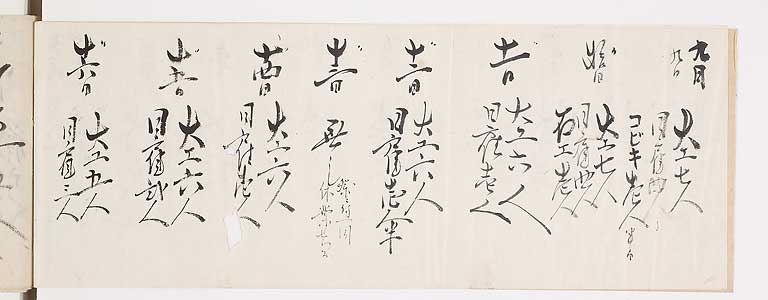 九月
九日
大工七人
日雇四人
コビキ壱人
十日
大工七人
日雇四人
石工壱人
十一日
大工六人
日雇壱人
十二日
大工六人
日雇壱人半
十三日
無し
十四日
大工六人
日雇壱人
十五日
大工六人
日雇弐人
十六日
大工五人
日雇三人